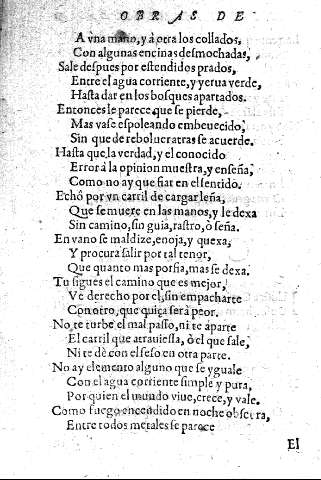 OBRAS DE
A vna mano, y à otra los collados,
Con algunas encinas desmochadas,
Sale despues por estendidos prados,
Entre el agua corriente, y yerua verde,
Hasta dar en los bosques apartados.
Entonces le parece que se pierde,
Mas vase espoleando embeuecido,
Sin que de reboluer atras se acuerde.
Hasta que la verdad, y el conocido
Error à la opinion muestra, y enseña,
Como no ay que fiar en el sentido.
Echó por vn carril de cargar leña,
Que se muere en las manos, y le dexa
Sin camino, sin guia, rastro, ò seña.
En vano se maldize, enoja, y quexa,
Y procura salir por tal tenor,
Que quanto mas porfia, mas se dexa.
Tu sigues el camino que es mejor,
Ve derecho por el, sin empacharte
Con otro, que quiça serà peor.
No te turbe el mal passo, ni te aparte
El carril que atrauiessa, ò el que sale,
Ni te dè con el seso en otra parte.
No ay elemento alguno que se yguale
Con el agua corriente simple y pura,
Por quien el mundo viue, crece, y vale.
Como fuego encendido en noche obscura,
Entre todos metales se parece
El